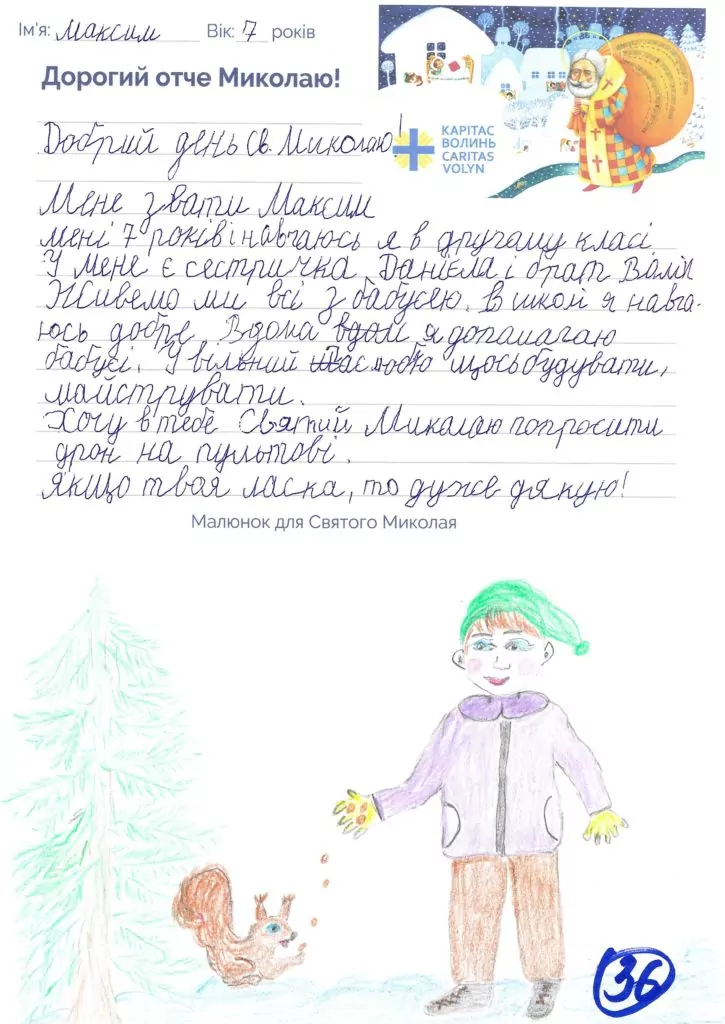 Ім'я: Максим Вік: 7 років
Дорогий отче Миколаю!
КАРІТАС
ВОЛИНЬ
CARITAS
VOLYN
Добрий день Св. Миколаю!
Мене звати Максим
мені 7 років і навчаюсь я в другому класі
У мене є сестричка Данієла і брат
Живемо ми всі з бабусею. В школі я навча-
юсь добре. Вдома вдом я допомагаю
бабусі. У вільний час люблю щось будувати,
майструвати.
Хочу в тебе Святий Миколаю попросити
дрон на пультові.
якщо твоя ласка, то дуже дякую!
Малюнок для Святого Миколая
36